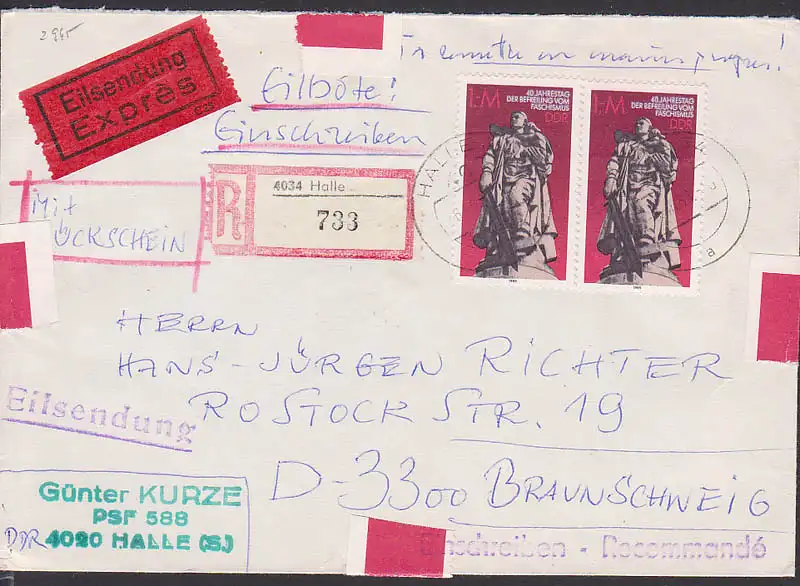 2945
Eilsendung
Exprès
Eilbote!
Einschreiben
R
4034 Halle
733
Mit
ÜCKSCHEIN
1,-M
40. JAHRESTAG
DER BEFREIUNG VOM
FASCHISMUS
DDR
1985
1,-M
40. JAHRESTAG
DER BEFREIUNG VOM
FASCHISMUS
DDR
1985
HALLE
a
HERRN
HANS-JÜRGEN RICHTER
ROSTOCKSTR. 19
D-3300 BRAUNSCHWEIG
Eilsendung
Günter KURZE
PSF 588
DDR 4020 HALLE (S)
Einschreiben - Recommandé